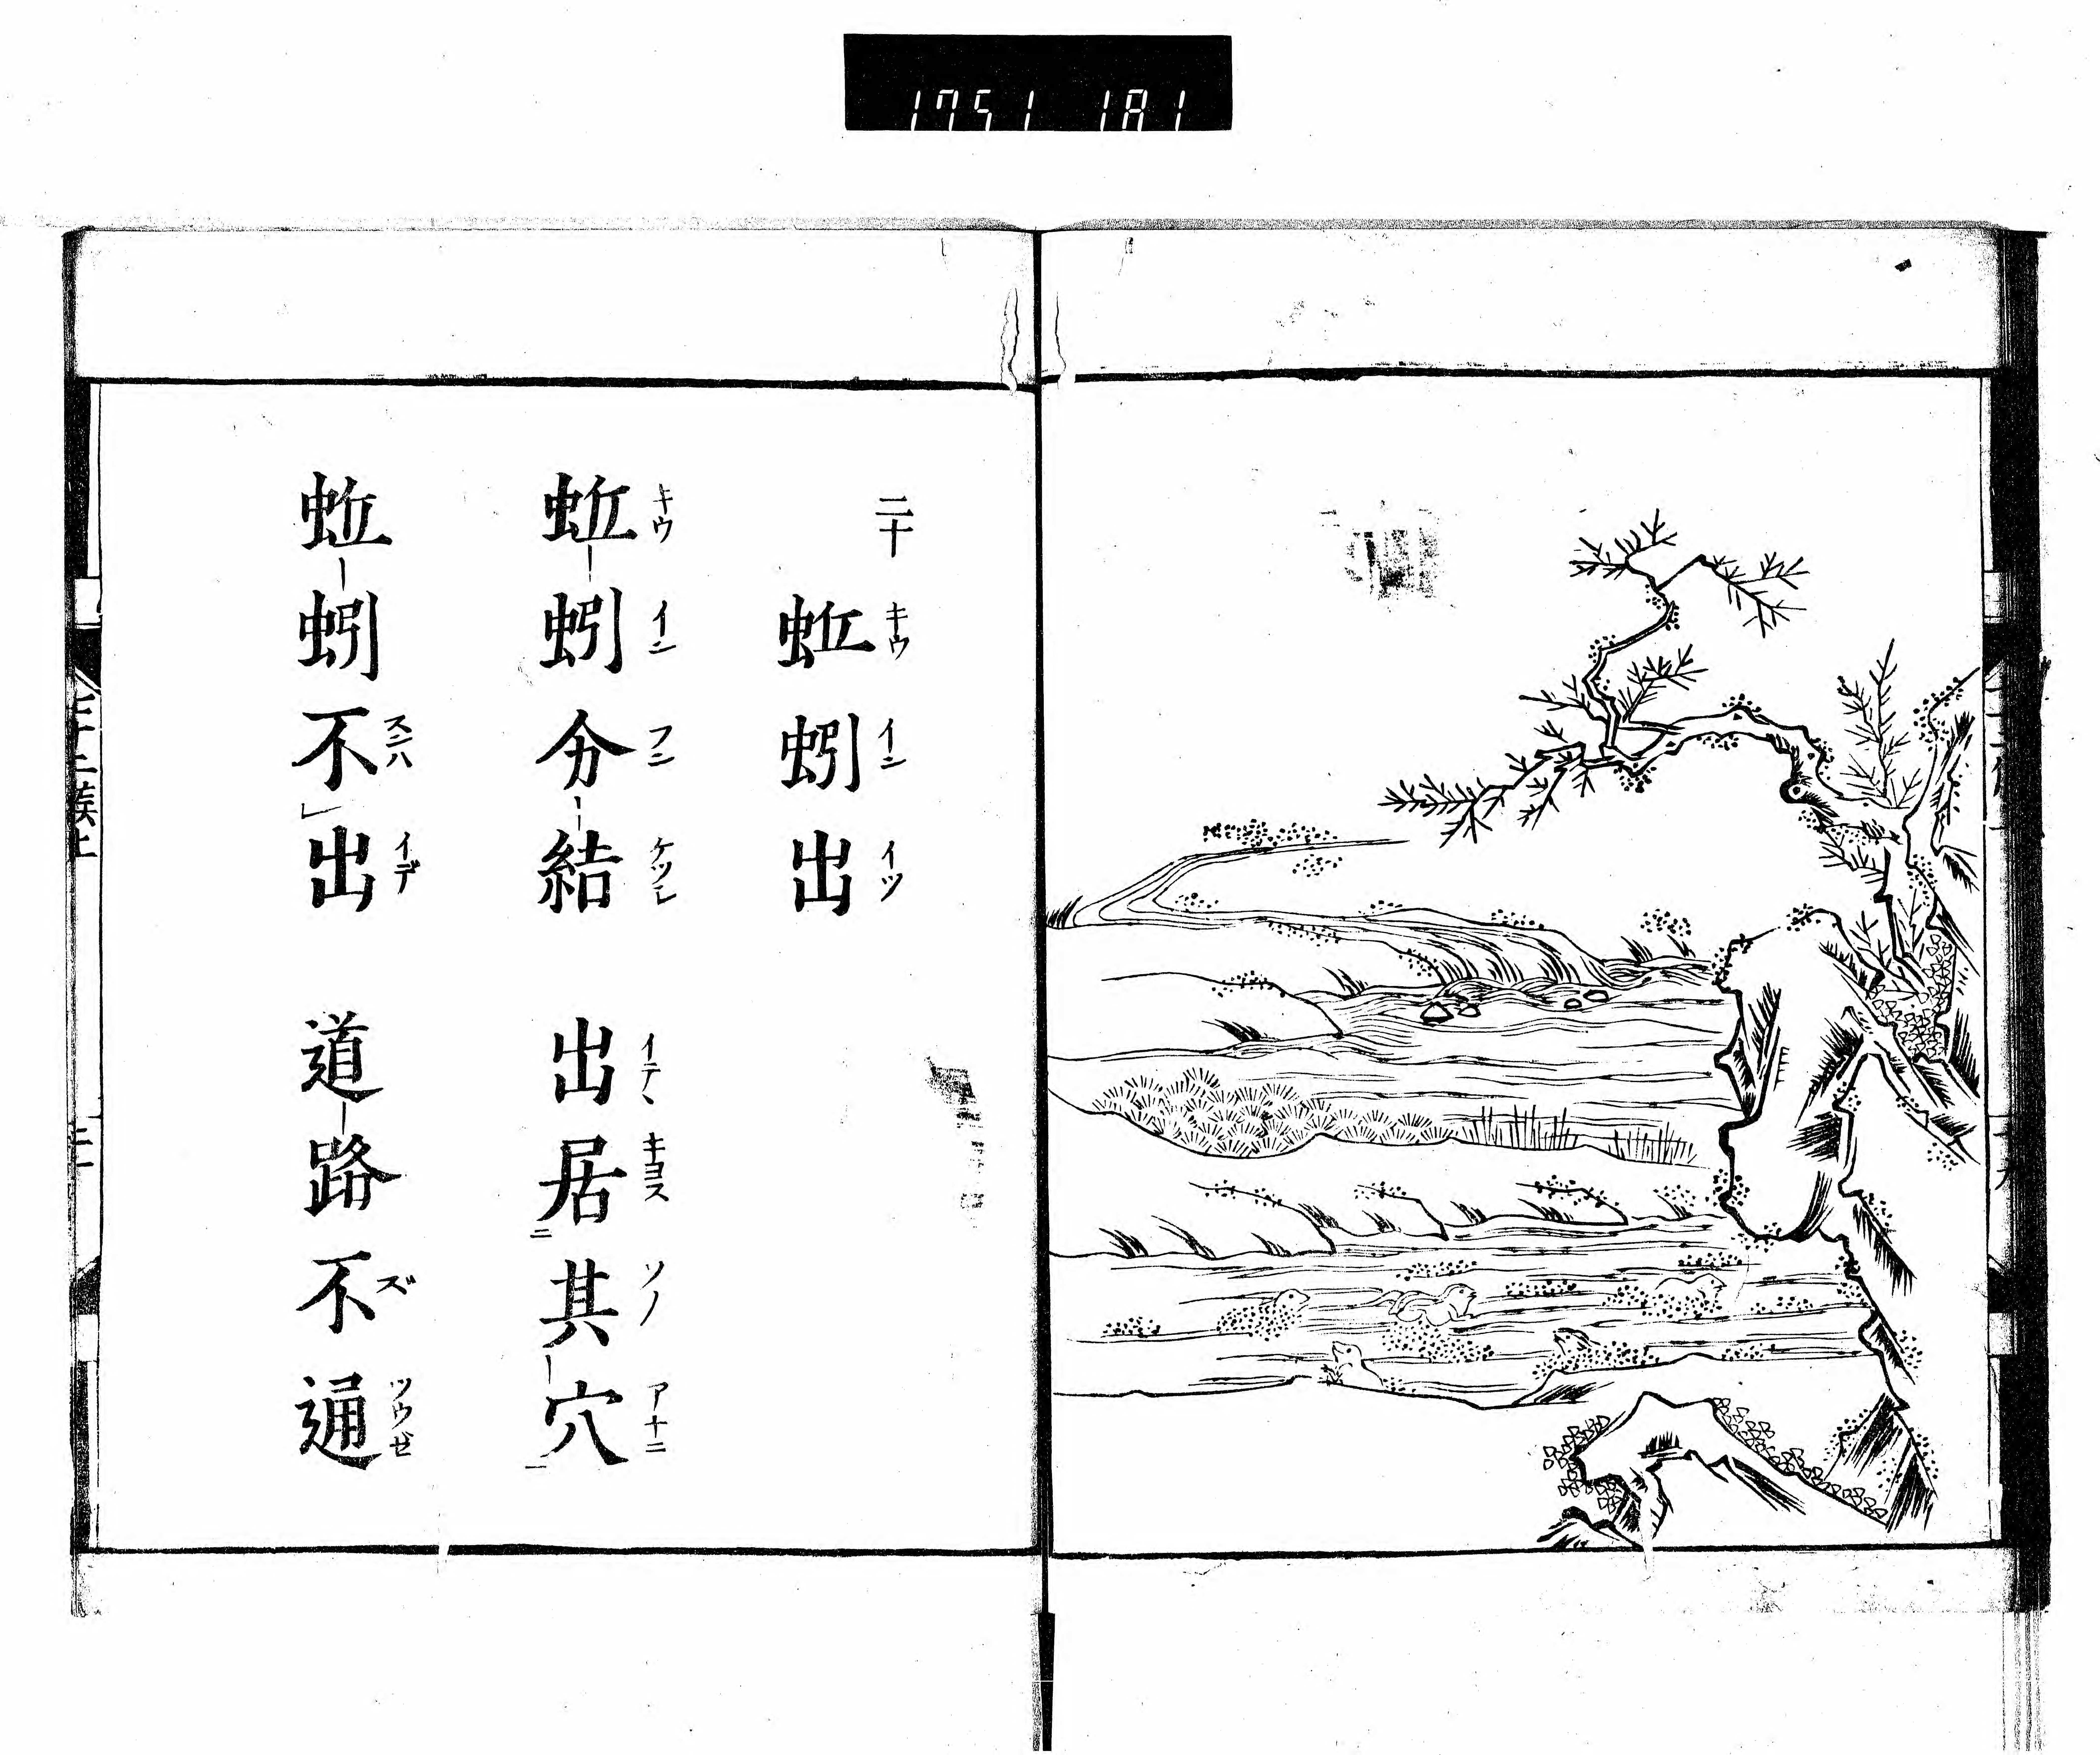 1751 181
二十
蚯蚓出
キウ イン イツ
蚯蚓分結 出居其穴
キウ イン フン ケツレ イテヽ キヨス ソノ アナニ
二 一
蚯蚓不出 道路不通
スンハ イデ ズ ツウゼ
レ
七十二候上